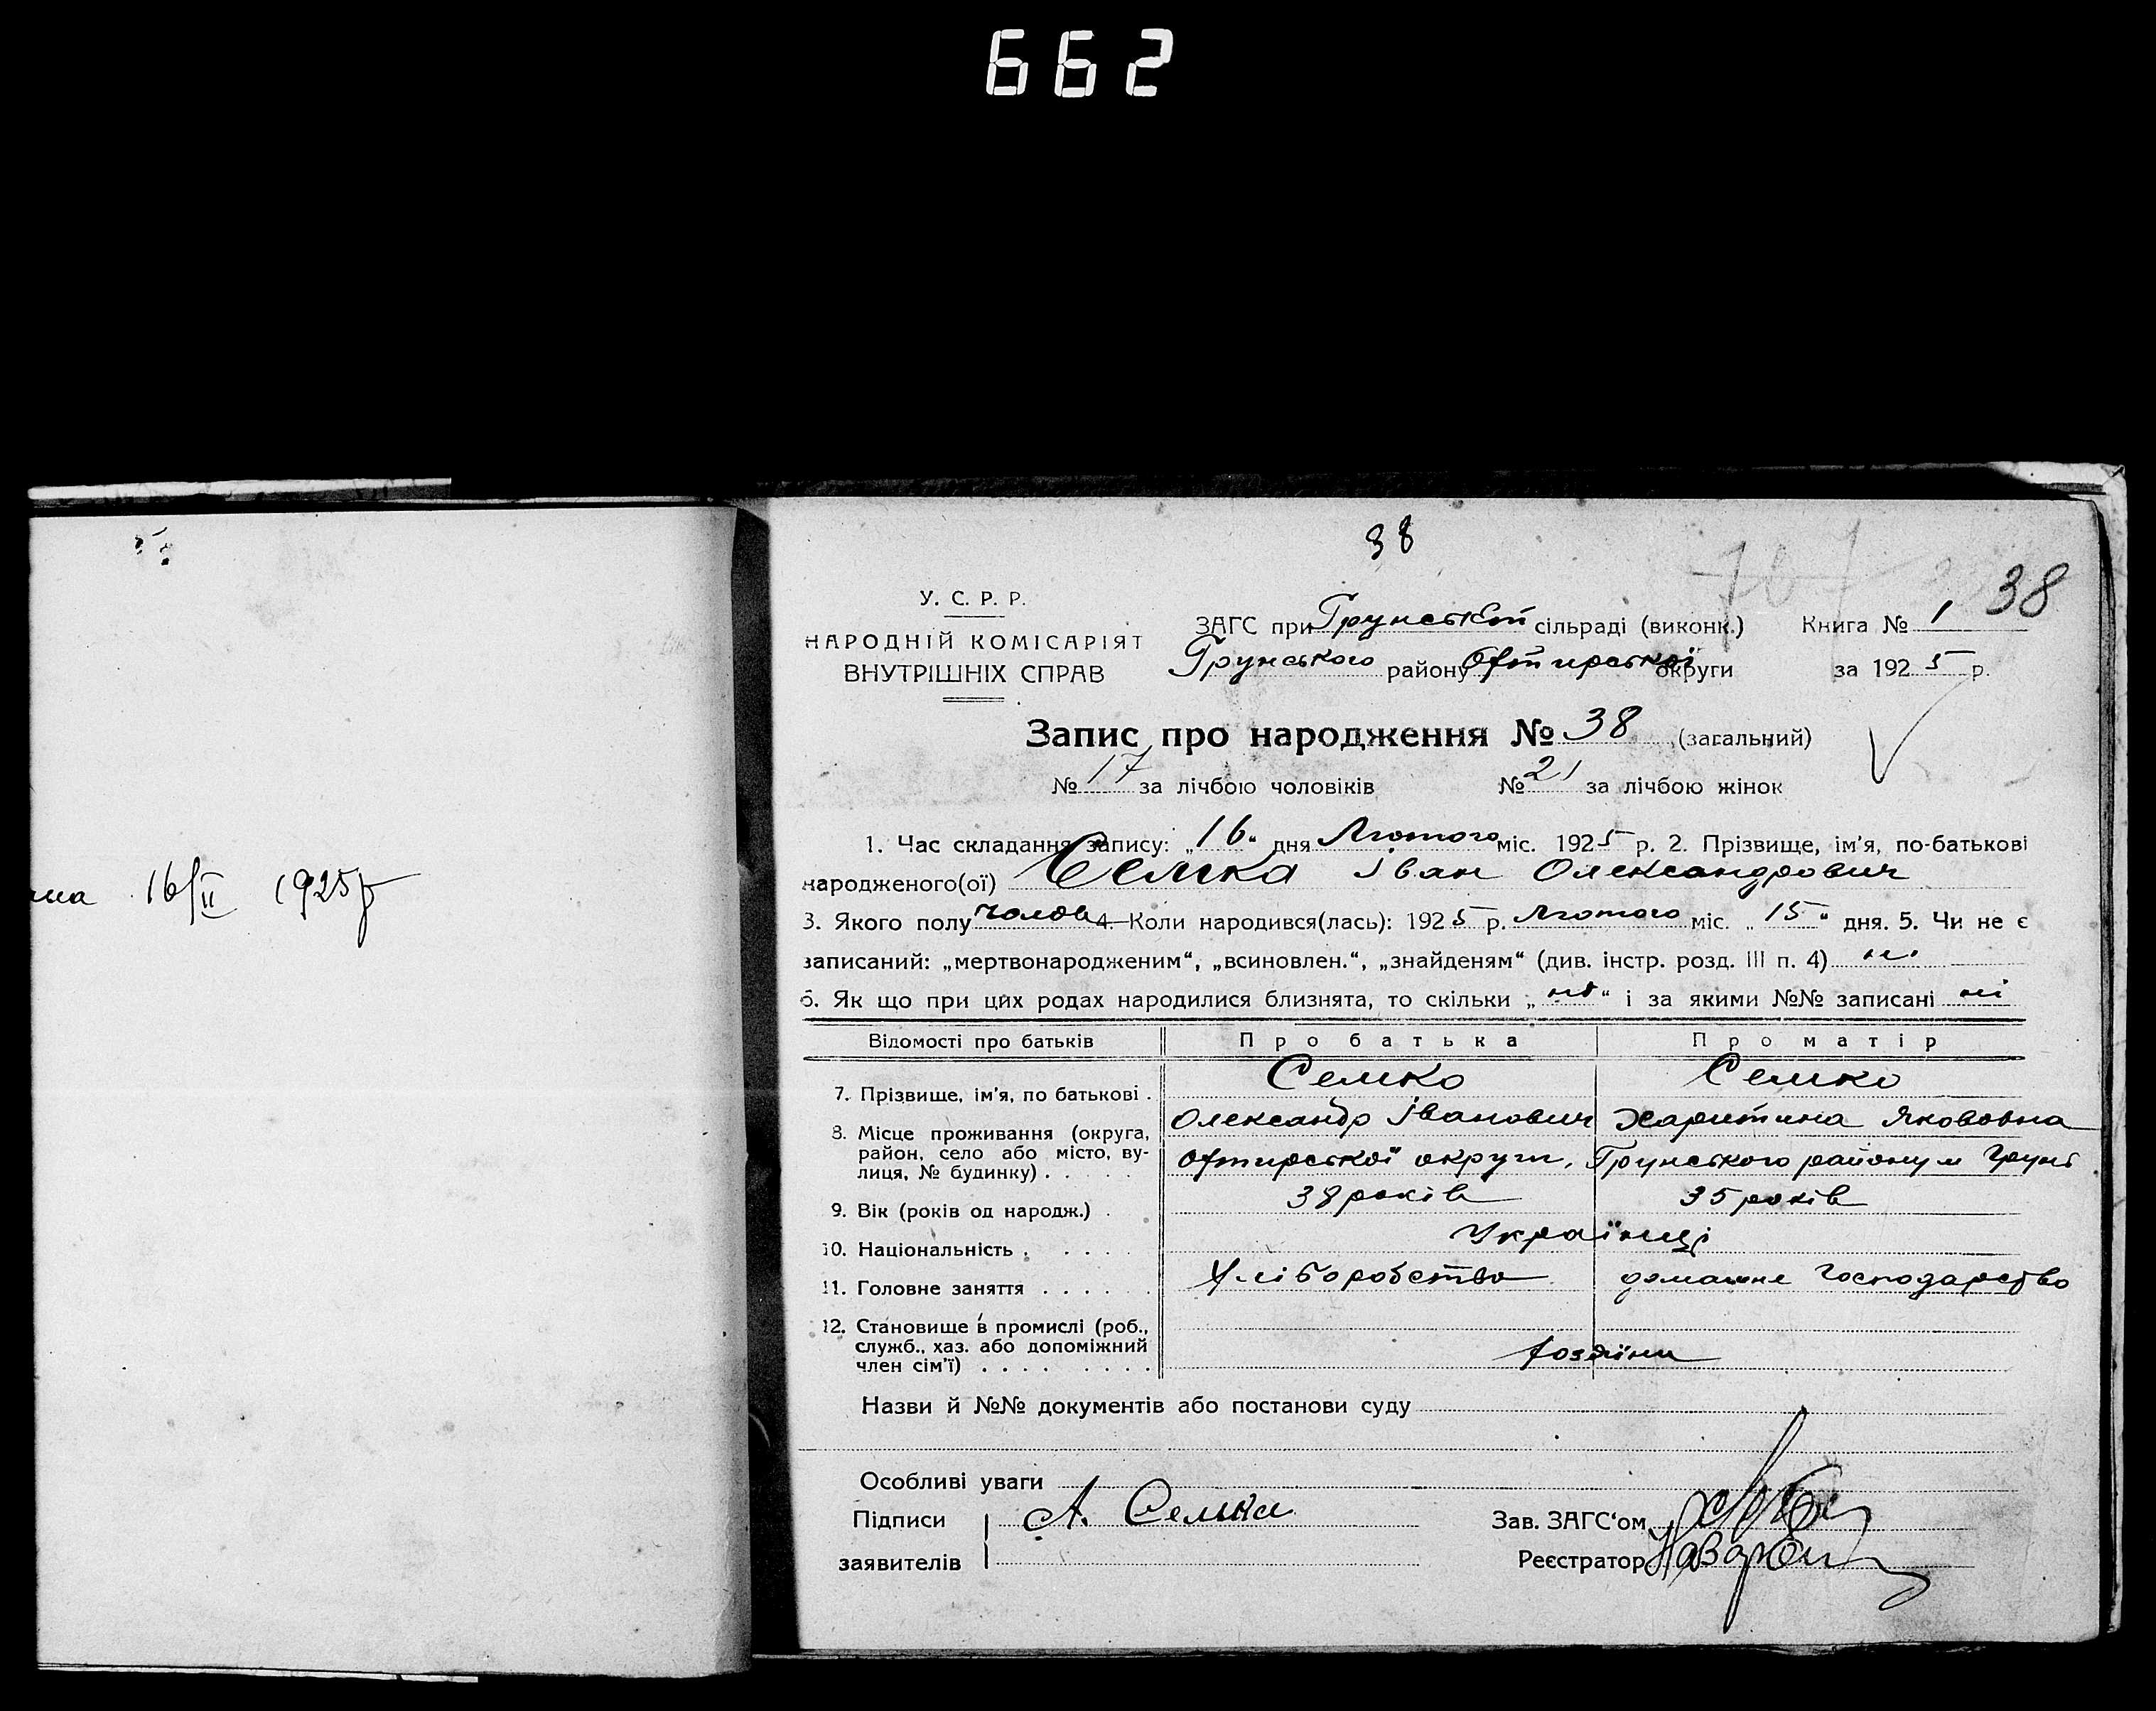 662
38
707
38
У. С. Р. Р.
НАРОДНІЙ КОМІСАРІЯТ
ВНУТРІШНІХ СПРАВ
ЗАГС при Грунській сільраді (виконк.) Книга № 1
Грунського району Охтирської округи за 1925 р.
Запис про народження № 38 (загальний)
№ 17 за лічбою чоловіків № 21 за лічбою жінок
1. Час складання запису: „16“ дня Лютого міс. 1925 р. 2. Прізвище, ім'я, по-батькові
народженого(ої) Семка Іван Олександрович
3. Якого полу чолов 4. Коли народився(лась): 1925 р. Лютого міс. „15“ дня. 5. Чи не є
записаний: „мертвонародженим“, „всиновлен.“, „знайденям“ (див. інстр. розд. III п. 4) ні
6. Як що при цих родах народилися близнята, то скільки „ні“ і за якими №№ записані ні
Відомості про батьків Про батька Про матір
7. Прізвище, ім'я, по батькові . Семко Семко
Олександр Іванович Харитина Якововна
8. Місце проживання (округа,
район, село або місто, ву-
лиця, № будинку) . . . Охтирської округи, Грунського району м Грунь
9. Вік (років од народж.) . 38 років 35 років
10. Національність . . . . . Українці
11. Головне заняття . . . . . . Хліборобство домашнє господарство
12. Становище в промислі (роб.,
служб., хаз. або допоміжний
член сім'ї) . . . . . . . . . хозяїни
Назви й №№ документів або постанови суду
Особливі уваги
Підписи А. Семка Зав. ЗАГС'ом
заявителів Реєстратор
16/II 1925 р